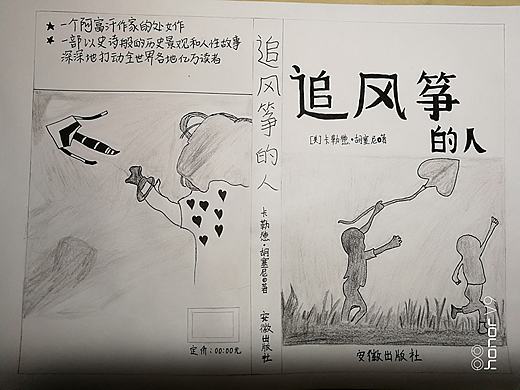 ★ 一个阿富汗作家的处女作
★ 一部以史诗般的历史景观和人性故事
深深地打动全世界各地亿万读者
定价:00:00元
追风筝的人
卡勒德·胡塞尼◎著
安徽出版社
追风筝
的人
[美]卡勒德·胡塞尼◎著
安徽出版社
honor V9